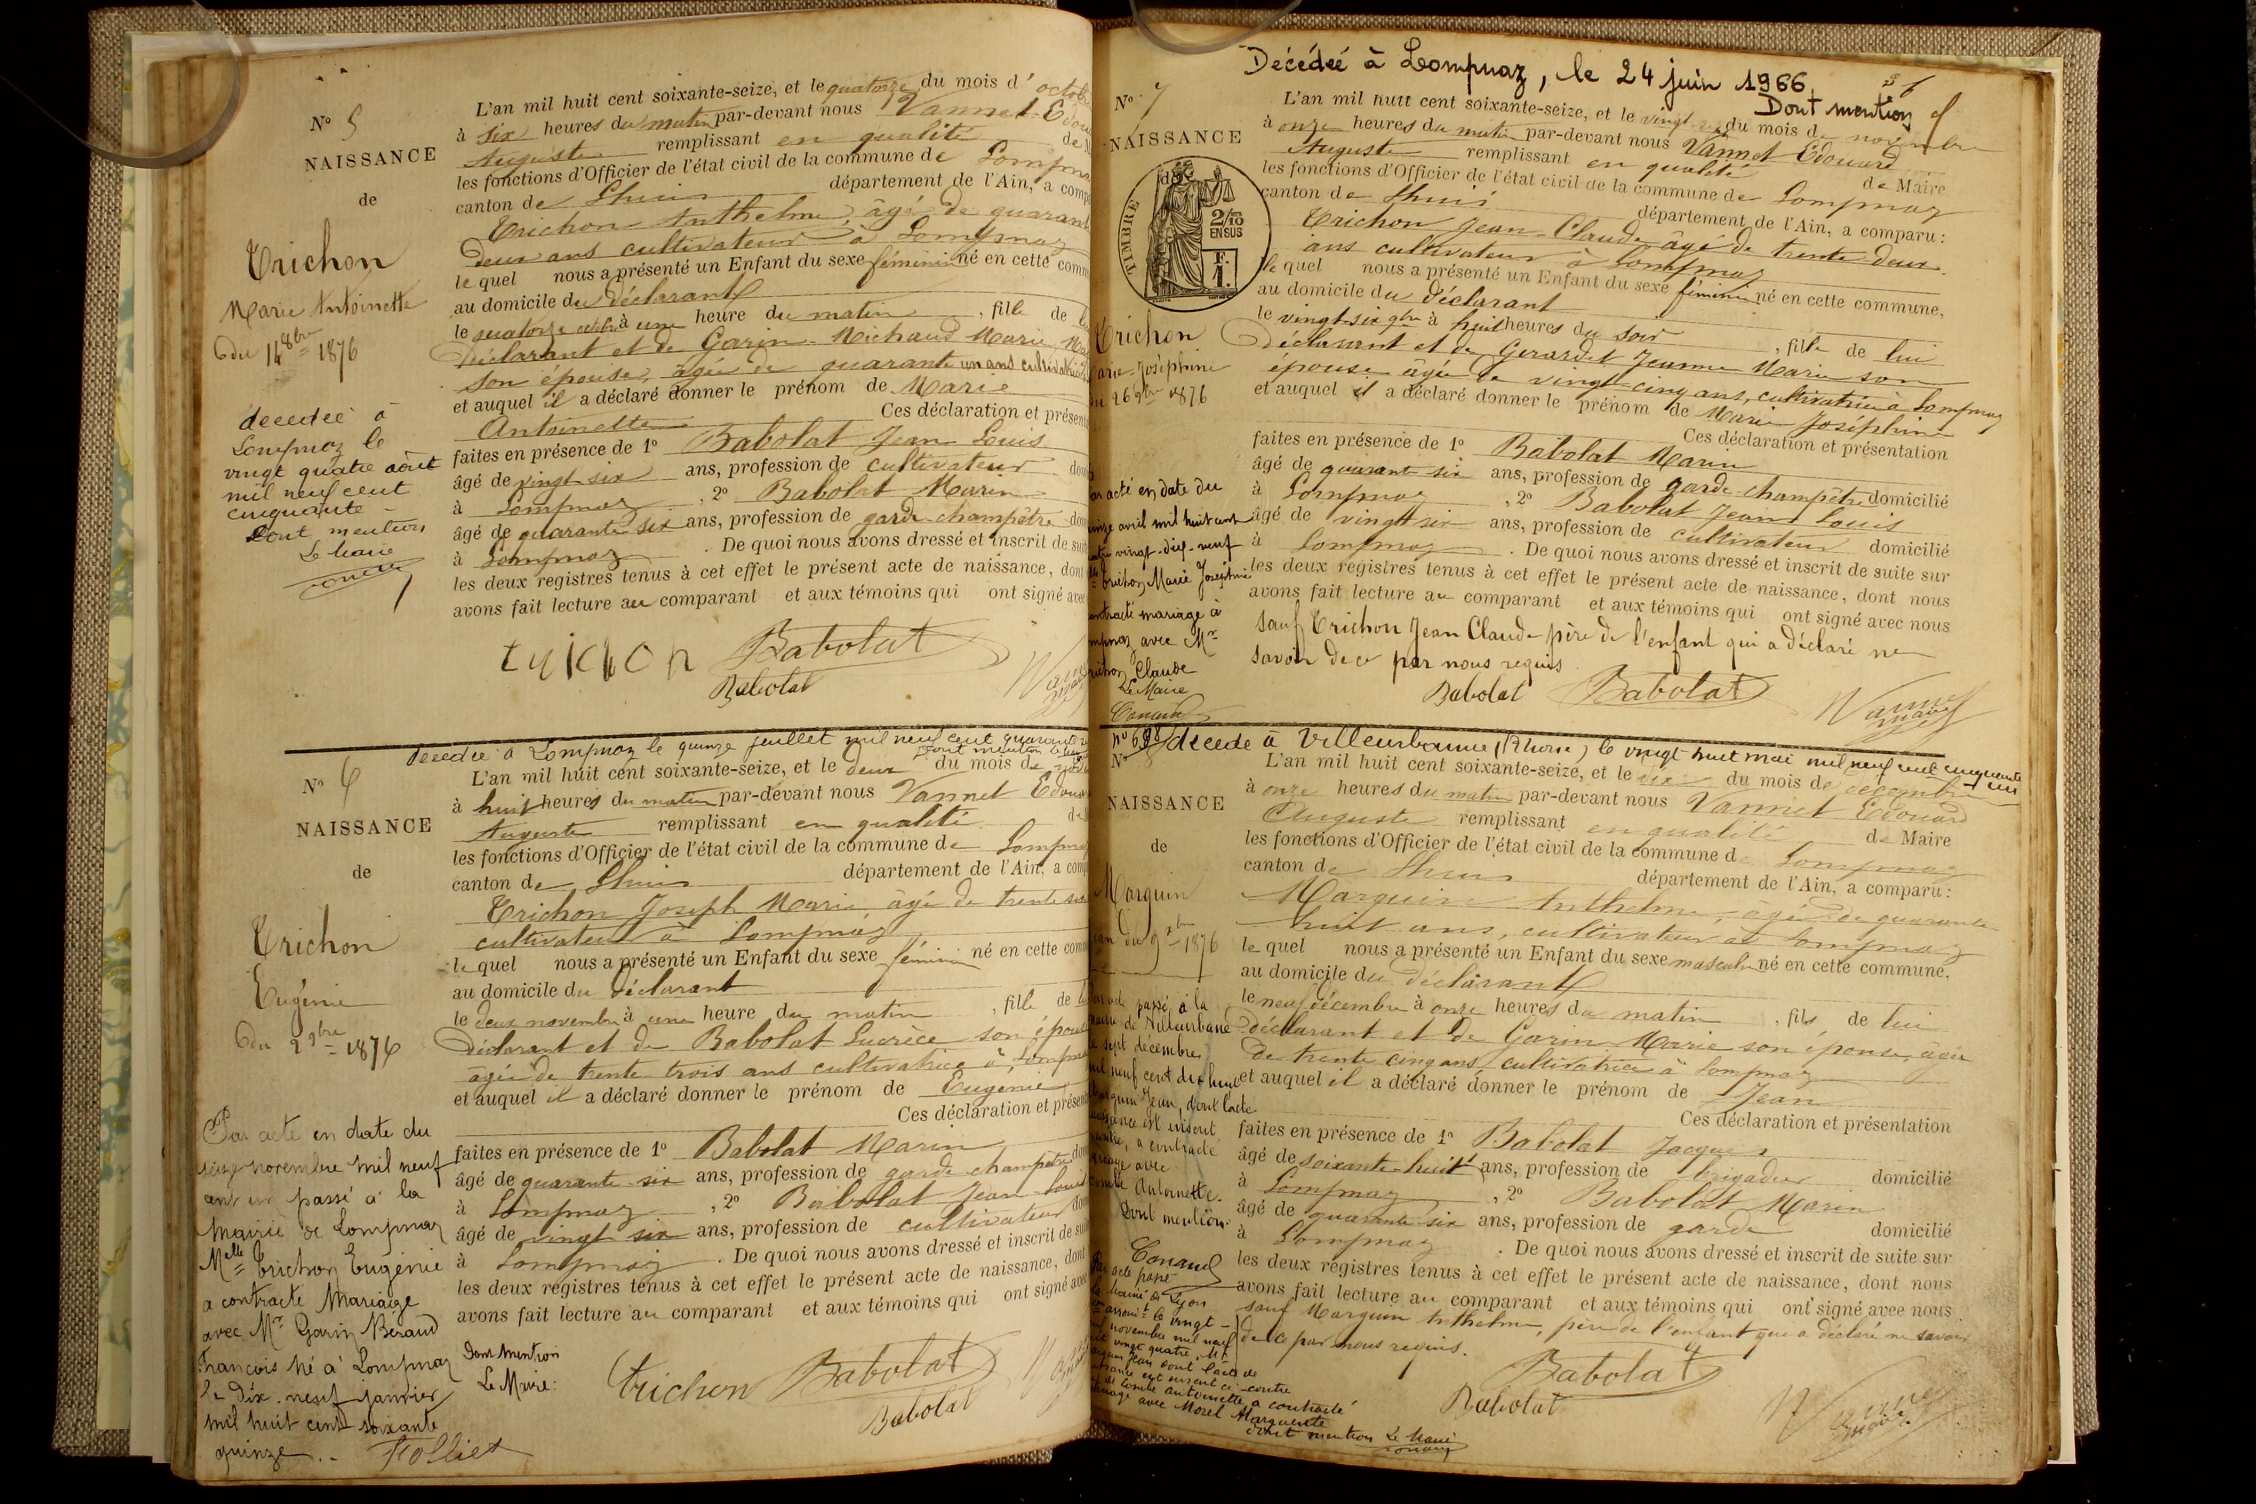 N° 5
NAISSANCE
de
Trichon
Marie Antoinette
du 14 8bre 1876
décédée à
Lompnaz le
vingt quatre août
mil neuf cent
cinquante
Dont mention
Le Maire
L'an mil huit cent soixante-seize, et le quatorze du mois d'octobre
à six heures du matin par-devant nous Vannet Edou
Auguste remplissant en qualité de M
les fonctions d'Officier de l'état civil de la commune de Lompna
canton de Lhuis département de l'Ain, a comp
Trichon Anthelme, âgé de quarante
deux ans cultivateur à Lompnaz
lequel nous a présenté un Enfant du sexe féminin né en cette comm
au domicile du déclarant
le quatorze octobre à une heure du matin, fille de l
déclarant et de Garin-Michaud Marie
son épouse, âgée de quarante un ans cultivatrice
et auquel il a déclaré donner le prénom de Marie
Antoinette Ces déclaration et présent
faites en présence de 1° Babolat Jean Louis
âgé de vingt six ans, profession de cultivateur dom
à Lompnaz, 2° Babolat Marin
âgé de quarante six ans, profession de garde champêtre dom
à Lompnaz. De quoi nous avons dressé et inscrit de suit
les deux registres tenus à cet effet le présent acte de naissance, dont
avons fait lecture au comparant et aux témoins qui ont signé avec
trichon Babolat
Babolat
décédée à Lompnaz le quinze juillet mil neuf cent quarante
Dont mention
N° 6
NAISSANCE
de
Trichon
Eugénie
du 2 9bre 1876
Par acte en date du
seize novembre mil neuf
cent un passé à la
Mairie de Lompnaz
Melle Trichon Eugénie
a contracté Mariage
avec Mr Garin Béraud
François né à Lompnaz
le dix-neuf janvier
mil huit cent soixante
quinze.
Dont mention
Le Maire:
L'an mil huit cent soixante-seize, et le deux du mois de
à huit heures du matin par-devant nous Vannet Edoua
Auguste remplissant en qualité de
les fonctions d'Officier de l'état civil de la commune de Lompna
canton de Lhuis département de l'Ain, a comp
Trichon Joseph Marie, âgé de trente six
cultivateur à Lompnaz
lequel nous a présenté un Enfant du sexe féminin né en cette com
au domicile du déclarant
le deux novembre à une heure du matin, fille de l
déclarant et de Babolat Lucrèce son épouse
âgée de trente trois ans cultivatrice à Lompna
et auquel il a déclaré donner le prénom de Eugénie
Ces déclaration et présent
faites en présence de 1° Babolat Marin
âgé de quarante six ans, profession de garde champêtre dom
à Lompnaz, 2° Babolat Jean Louis
âgé de vingt six ans, profession de cultivateur dom
à Lompnaz. De quoi nous avons dressé et inscrit de sui
les deux registres tenus à cet effet le présent acte de naissance, dont
avons fait lecture au comparant et aux témoins qui ont signé avec
Trichon Babolat
Babolat
Décédée à Lompnaz, le 24 juin 1966
Dont mention
N° 7
NAISSANCE
TIMBRE
2/10
EN SUS
F.
1
Trichon
Marie-Joséphine
du 26 9bre 1876
par acte en date du
quinze avril mil huit cent
quatre vingt-dix-neuf
Melle Trichon Marie Joséphine
contracté mariage à
Lompnaz avec Mr
Trichon Claude
Le Maire
Conand
L'an mil huit cent soixante-seize, et le vingt-sept du mois de novembre
à onze heures du matin par-devant nous Vannet Edouard
Auguste remplissant en qualité de Maire
les fonctions d'Officier de l'état civil de la commune de Lompnaz
canton de Lhuis département de l'Ain, a comparu:
Trichon Jean-Claude âgé de trente deux
ans cultivateur à Lompnaz
lequel nous a présenté un Enfant du sexe féminin né en cette commune,
au domicile du déclarant
le vingt-six 9bre à huit heures du soir, fille de lui
déclarant et de Gerardet Jeanne Marie son
épouse âgée de vingt-cinq ans, cultivatrice à Lompnaz
et auquel il a déclaré donner le prénom de Marie Joséphine
Ces déclaration et présentation
faites en présence de 1° Babolat Marin
âgé de quarante six ans, profession de garde-champêtre domicilié
à Lompnaz, 2° Babolat Jean Louis
âgé de vingt six ans, profession de cultivateur domicilié
à Lompnaz. De quoi nous avons dressé et inscrit de suite sur
les deux registres tenus à cet effet le présent acte de naissance, dont nous
avons fait lecture au comparant et aux témoins qui ont signé avec nous
sauf Trichon Jean Claude père de l'enfant qui a déclaré ne
savoir de ce par nous requis
Babolat Babolat
décédé à Villeurbanne (Rhône) le vingt huit mai mil neuf cent cinquante
N° 8
NAISSANCE
de
Marquin
Jean du 9 xbre 1876
Par acte passé à la
mairie de Villeurbanne
le sept décembre
mil neuf cent dix huit
Marquin Jean, dont l'acte
naissance est inscrit
contre, a contracté
mariage avec
Combe Antoinette.
Dont mention.
Conand
Par acte passé
la mairie de Lyon
arrondt le vingt-
novembre mil neuf
cent vingt quatre, Mr
Marquin Jean dont l'acte de
naissance est inscrit ci-contre
de Combe Antoinette a contracté
mariage avec Morel Marguerite
dont mention Le Maire
Conand
L'an mil huit cent soixante-seize, et le dix du mois de décembre
à onze heures du matin par-devant nous Vannet Edouard
Auguste remplissant en qualité de Maire
les fonctions d'Officier de l'état civil de la commune de Lompnaz
canton de Lhuis département de l'Ain, a comparu:
Marquin Anthelme, âgé de quarante
huit ans, cultivateur à Lompnaz
lequel nous a présenté un Enfant du sexe masculin né en cette commune,
au domicile du déclarant
le neuf décembre à onze heures du matin, fils de lui
déclarant et de Garin Marie son épouse, âgée
de trente cinq ans, cultivatrice à Lompnaz
et auquel il a déclaré donner le prénom de Jean
Ces déclaration et présentation
faites en présence de 1° Babolat Jacques
âgé de soixante-huit ans, profession de brigadier domicilié
à Lompnaz, 2° Babolat Marin
âgé de quarante six ans, profession de garde domicilié
à Lompnaz. De quoi nous avons dressé et inscrit de suite sur
les deux registres tenus à cet effet le présent acte de naissance, dont nous
avons fait lecture au comparant et aux témoins qui ont signé avec nous
sauf Marquin Anthelme, père de l'enfant qui a déclaré ne savoir
de ce par nous requis.
Babolat
Babolat